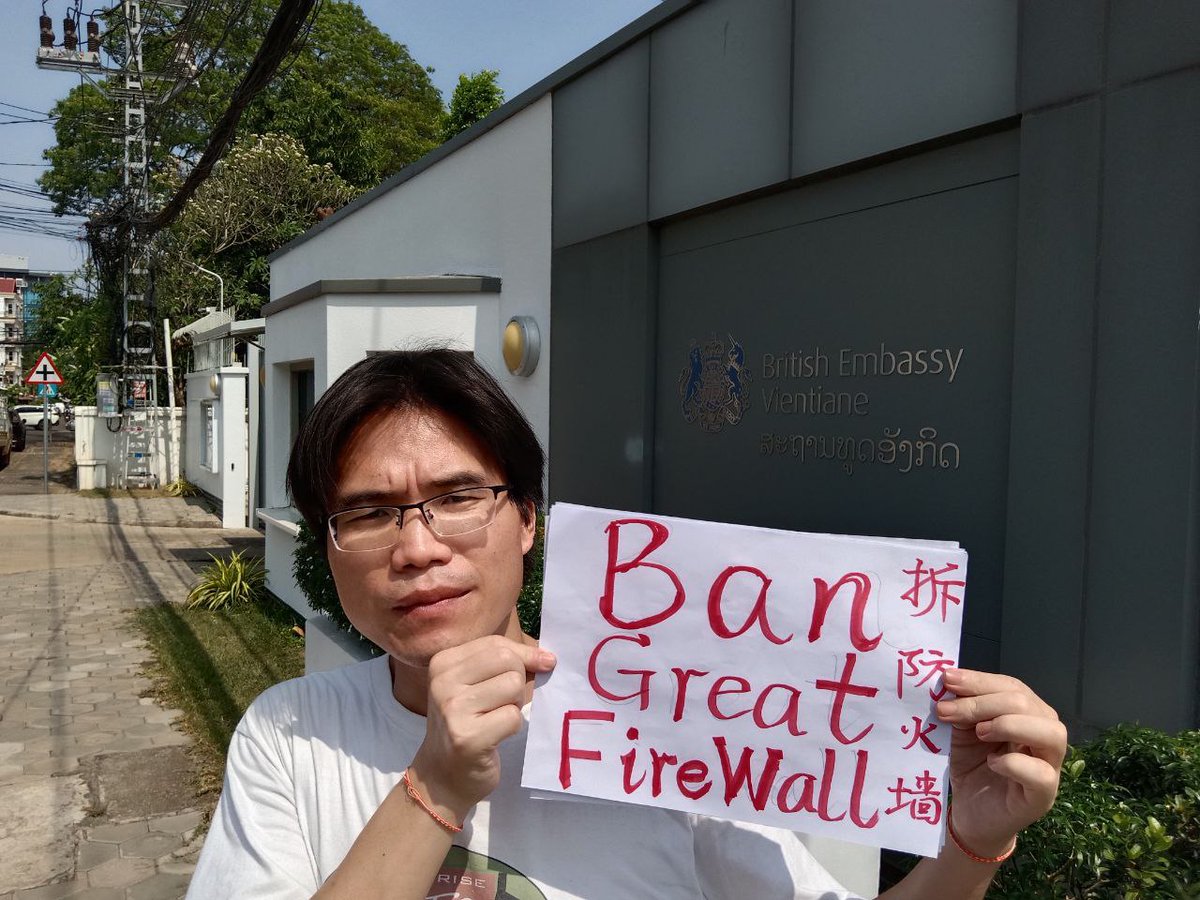 British Embassy
Vientiane
ສະຖານທູດອັງກິດ
Ban
Great
FireWall
拆防火墙
RISE